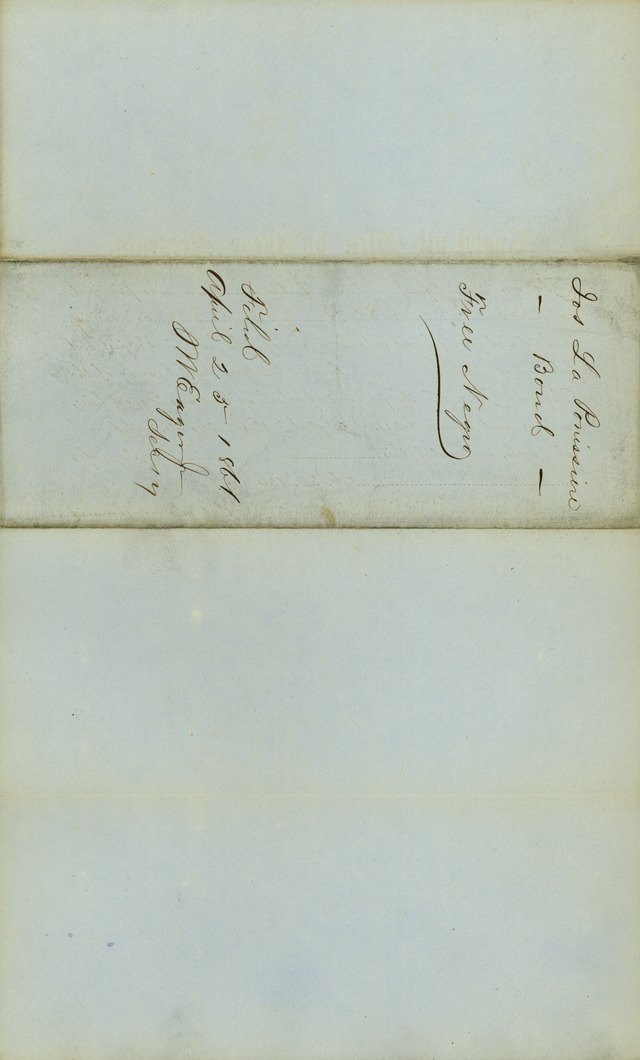 Jos La Ponissine
— Bond —
Free Negro
Filed
April 25 1861
J M Eager